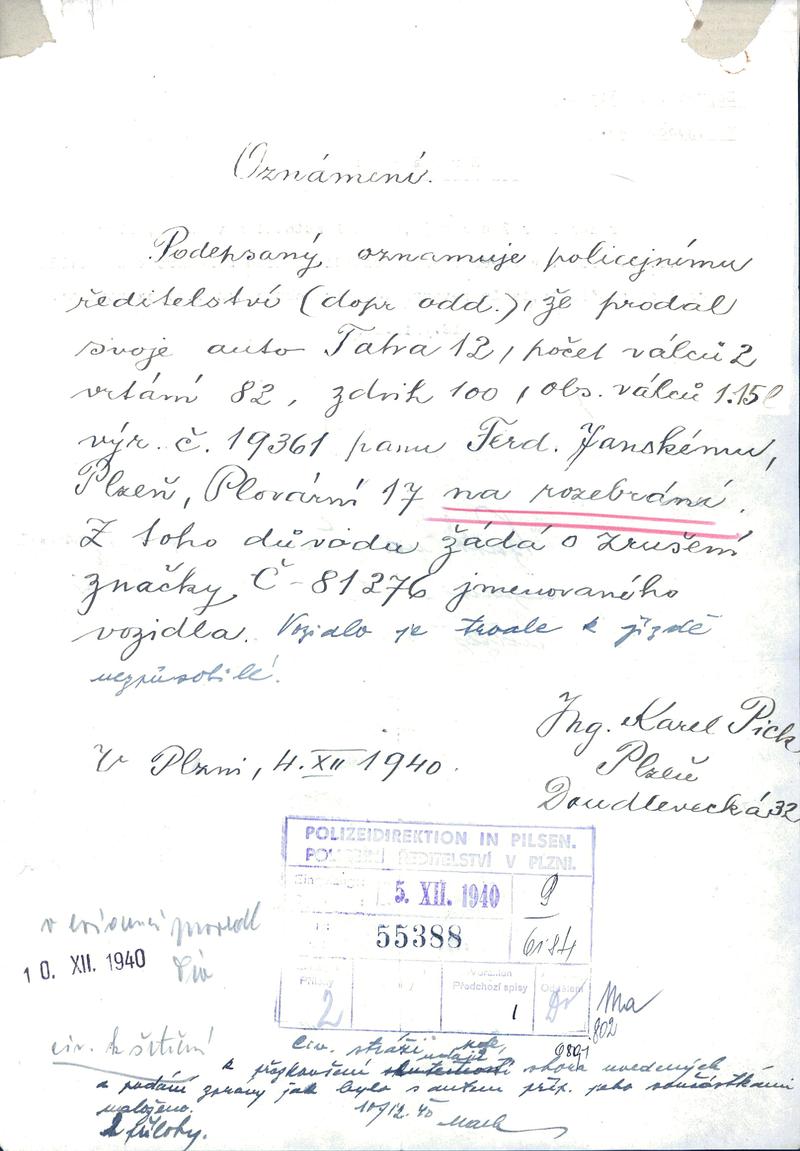 Oznámení.
Podepsaný oznamuje policejnímu
ředitelství (dopr odd.), že prodal
svoje auto Tatra 12, počet válců 2
vrtání 82, zdvih 100, obs. válců 1.15 l
výr. č. 19361 panu Ferd. Janskému,
Plzeň, Plovární 17 na rozebrání.
Z toho důvodu žádá o zrušení
značky Č-81276 jmenovaného
vozidla. Vozidlo je trvale k jízdě
nezpůsobilé.
Ing. Karel Pick,
Plzeň
Doudlevecká 32
V Plzni, 4. XII 1940.
POLIZEIDIREKTION IN PILSEN.
POLICEJNÍ ŘEDITELSTVÍ V PLZNI.
5. XII. 1940 9
55388
Přílohy Předchozí spisy
2 1
v evidenci provedl
10. XII. 1940
Ma
802
civ. k šetření
civ. stráži
k přezkoušení údajů shora uvedených
a podání zprávy jak bylo s autem příp. jeho součástkami
naloženo.
10/12. 40
2 přílohy.